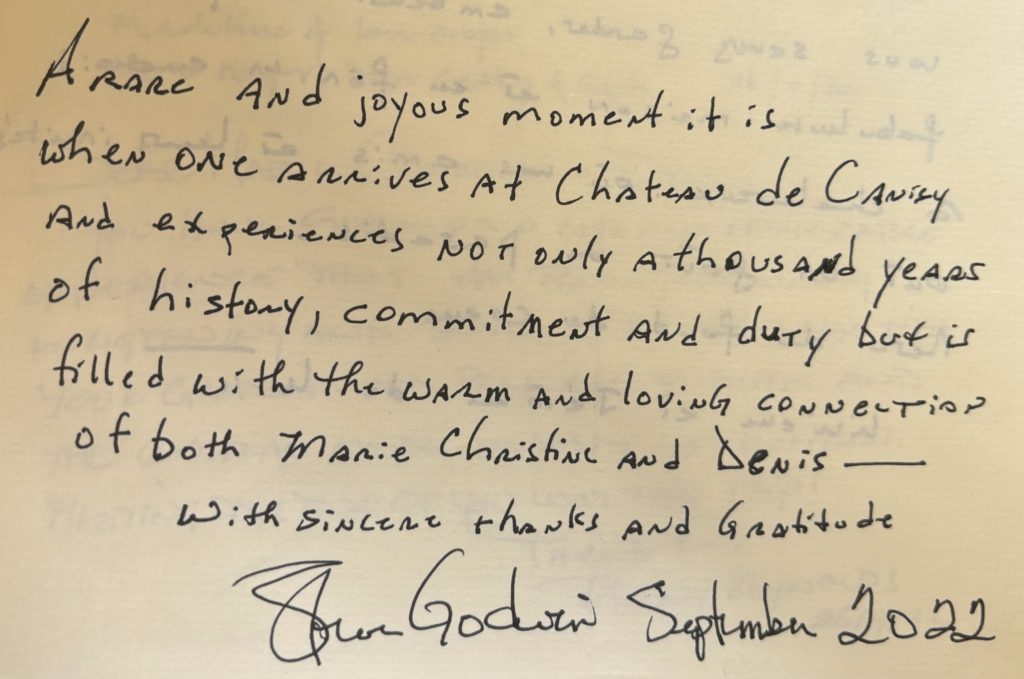 A rare and joyous moment it is
when one arrives at Chateau de Canisy
and experiences not only a thousand years
of history, commitment and duty but is
filled with the warm and loving connection
of both Marie Christine and Denis —
with sincere thanks and Gratitude
Godwin September 2022